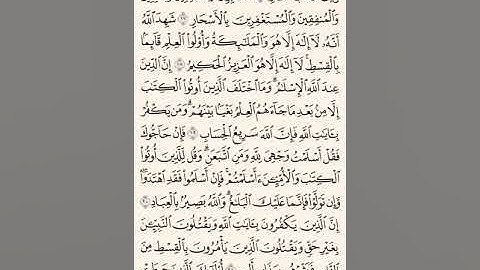 وَٱلْمُنفِقِينَ وَٱلْمُسْتَغْفِرِينَ بِٱلْأَسْحَارِ ١٧ شَهِدَ ٱللَّهُ
أَنَّهُۥ لَآ إِلَٰهَ إِلَّا هُوَ وَٱلْمَلَٰٓئِكَةُ وَأُو۟لُوا۟ ٱلْعِلْمِ قَآئِمًۢا
بِٱلْقِسْطِ ۚ لَآ إِلَٰهَ إِلَّا هُوَ ٱلْعَزِيزُ ٱلْحَكِيمُ ١٨ إِنَّ ٱلدِّينَ
عِندَ ٱللَّهِ ٱلْإِسْلَٰمُ ۗ وَمَا ٱخْتَلَفَ ٱلَّذِينَ أُوتُوا۟ ٱلْكِتَٰبَ
إِلَّا مِنۢ بَعْدِ مَا جَآءَهُمُ ٱلْعِلْمُ بَغْيًۢا بَيْنَهُمْ ۗ وَمَن يَكْفُرْ
بِـَٔايَٰتِ ٱللَّهِ فَإِنَّ ٱللَّهَ سَرِيعُ ٱلْحِسَابِ ١٩ فَإِنْ حَآجُّوكَ
فَقُلْ أَسْلَمْتُ وَجْهِىَ لِلَّهِ وَمَنِ ٱتَّبَعَنِ ۗ وَقُل لِّلَّذِينَ أُوتُوا۟
ٱلْكِتَٰبَ وَٱلْأُمِّيِّـۧنَ ءَأَسْلَمْتُمْ ۚ فَإِنْ أَسْلَمُوا۟ فَقَدِ ٱهْتَدَوا۟ ۖ
وَّإِن تَوَلَّوْا۟ فَإِنَّمَا عَلَيْكَ ٱلْبَلَٰغُ ۗ وَٱللَّهُ بَصِيرٌۢ بِٱلْعِبَادِ ٢٠
إِنَّ ٱلَّذِينَ يَكْفُرُونَ بِـَٔايَٰتِ ٱللَّهِ وَيَقْتُلُونَ ٱلنَّبِيِّـۧنَ
بِغَيْرِ حَقٍّ وَيَقْتُلُونَ ٱلَّذِينَ يَأْمُرُونَ بِٱلْقِسْطِ مِنَ